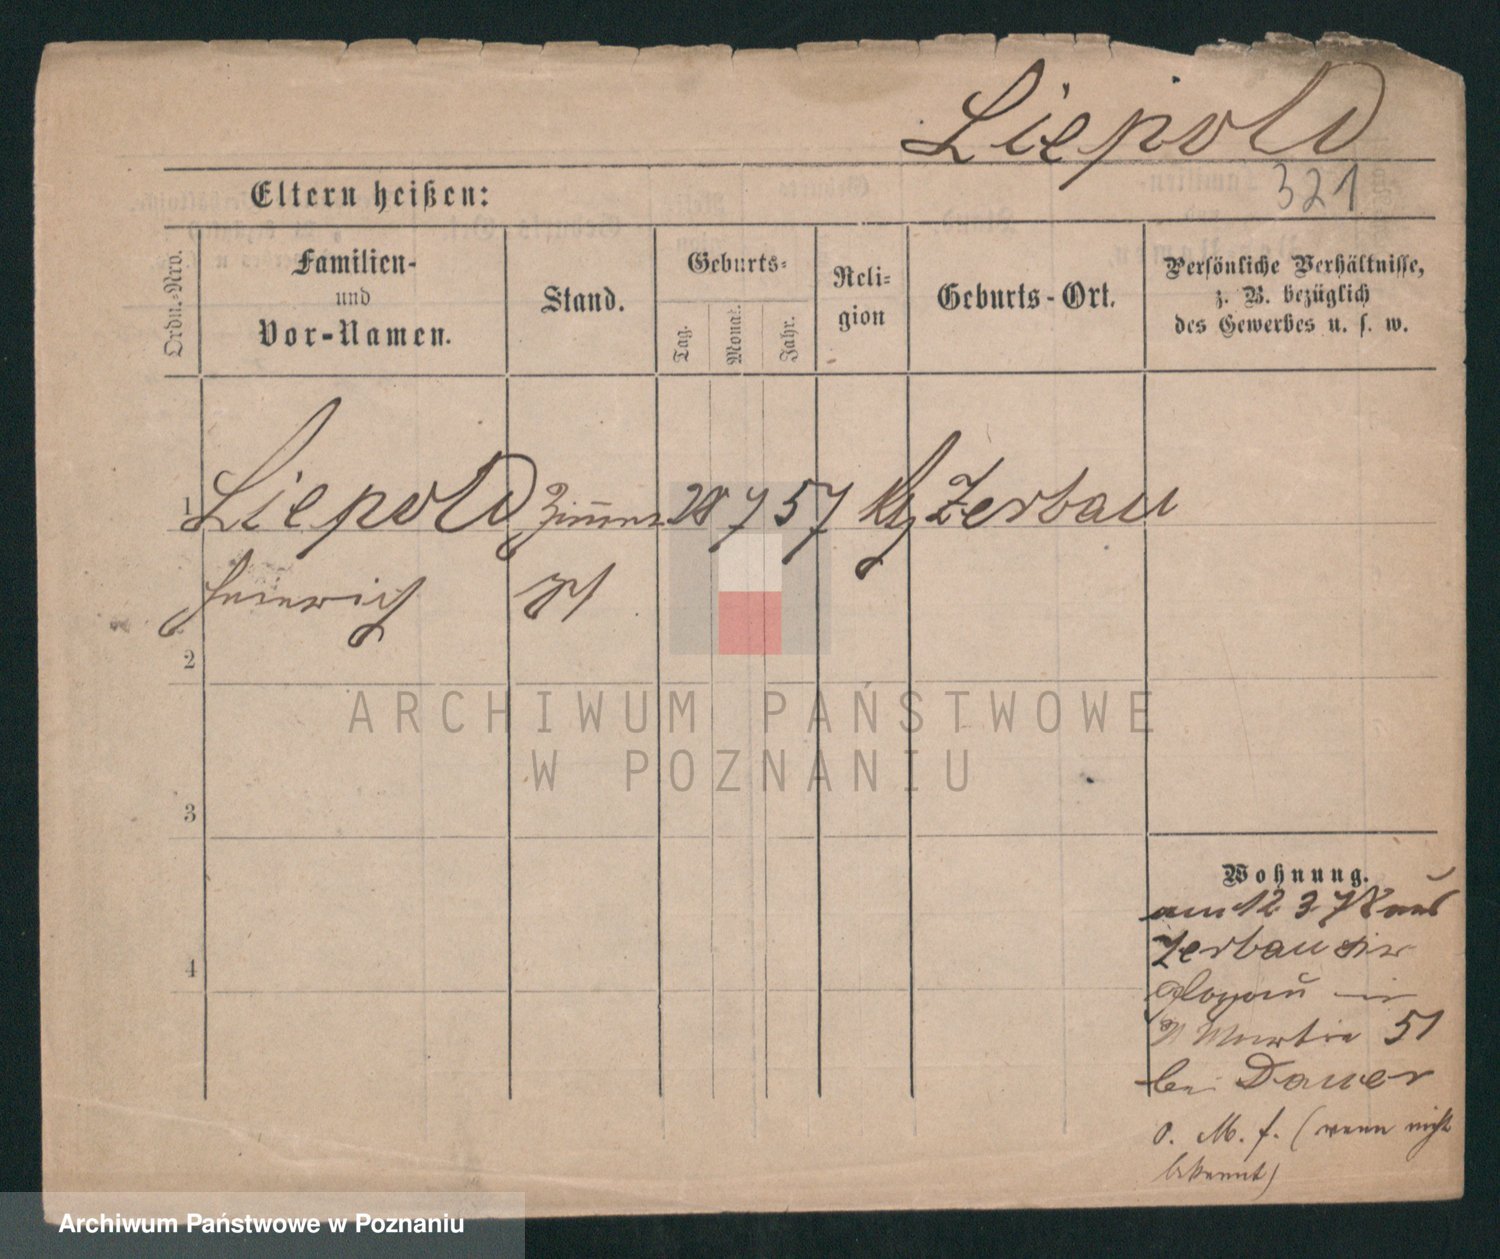 Liepold
321
Eltern heißen:
Ordn.-Nro.
Familien-
und
Vor-Namen.
Stand.
Geburts-
Tag.
Monat.
Jahr.
Reli-
gion
Geburts-Ort.
Persönliche Verhältnisse,
z. B. bezüglich
des Gewerbes u. s. w.
1 Liepold 28 7 57 Zerbau
Heinrich
2
3
4
Wohnung.
am 12 3 78 aus
Zerbau
Glogau
Martin 51
bei Dauer
o. M. f. (wenn nicht
bekannt)
ARCHIWUM PAŃSTWOWE
W POZNANIU
Archiwum Państwowe w Poznaniu